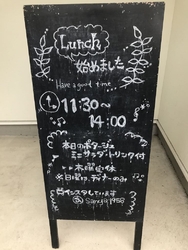 Lunch
始めました
Have a good time
11:30〜
14:00
本日のポタージュ
ミニサラダ・ドリンク付
木曜定休
水日曜り、ディナーのみ
インスタしています